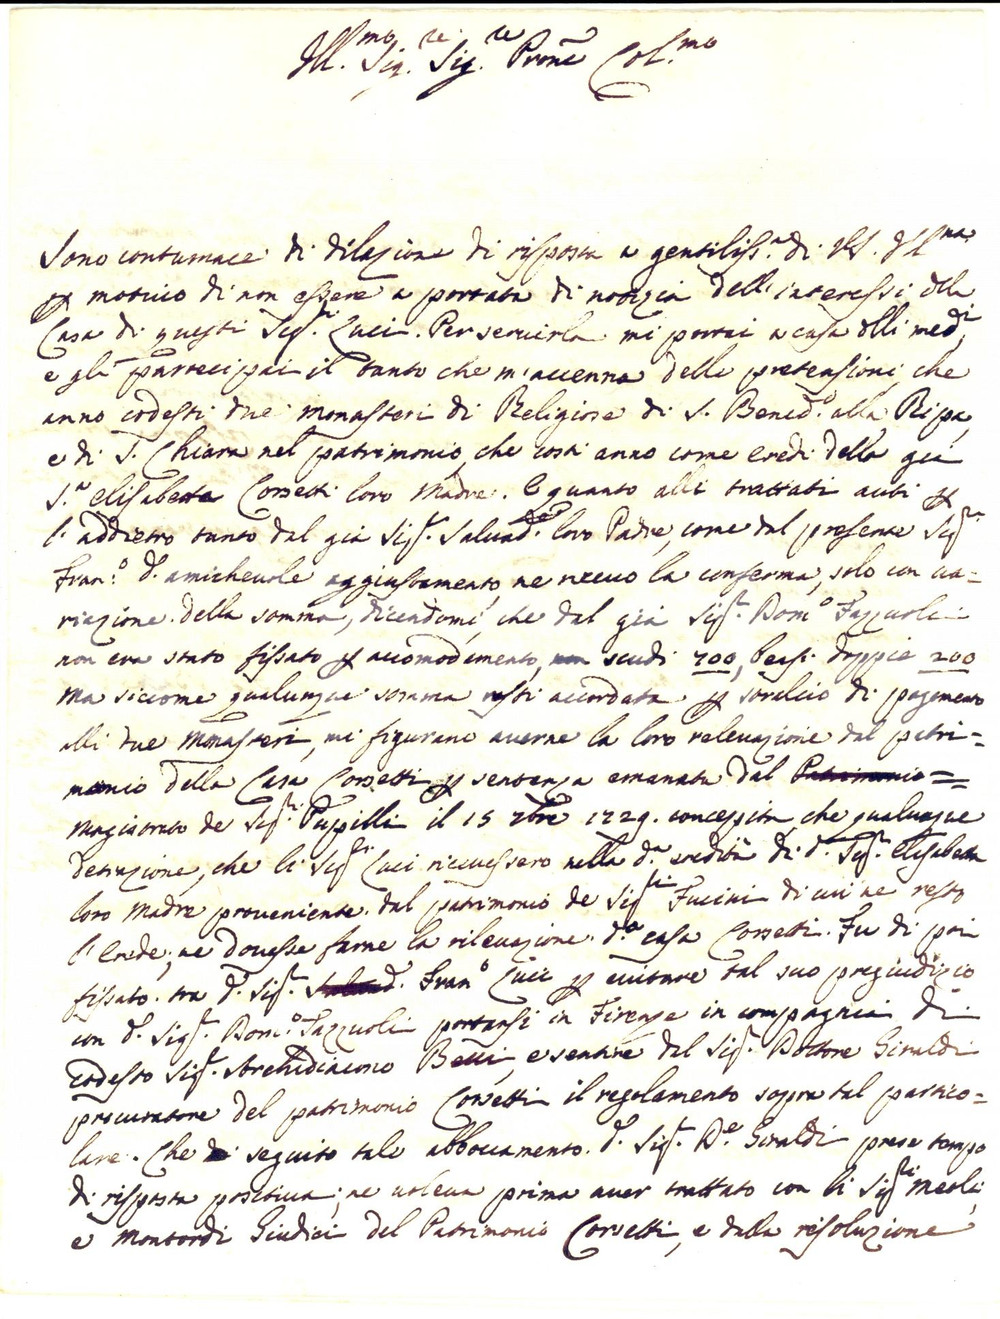 Ill.mo Sig.re Sig.re Prone Col.mo
Sono contumace di dilazione di risposta a gentiliss.a di VS. Ill.ma
per motivo di non essere a portata di notizia dell'interessi della
Casa di questi Sig.ri Luci. Per servirla mi portai a casa delli med.i
e gli partecipai il tanto che m'accenna delle pretensioni, che
anno codesti due Monasteri di Religiose di S. Bened.o alla Ripa,
e di S. Chiara nel patrimonio, che costì anno come Eredi della già
S.a Elisabetta Corsetti loro Madre. E quanto alli trattati auti per
l'addietro tanto dal già Sig.r Salvad.e loro Padre, come dal presente Sig.r
Fran.o d'amichevole aggiustamento, ne ricevo la conferma, solo con va=
riazione della somma, dicendomi, che dal già Sig.r Dom.o Fazzuoli
non era stato fissato per accomodamento, scudi 700, bensì doppie 200
Ma siccome qualunque somma resti accordata per stralcio di pagamento
alli due Monasteri, mi figurano averne la loro relevazione dal patri=
monio della Casa Corsetti per sentenza emanata dal Patrimonio=
Magistrato de Sig.ri Puppilli il 15 7bre 1729. concepita, che qualunque
detrazione, che li Sig.ri Luci ricevessero nella d.a eredità di d.a Sig.ra Elisabetta
loro Madre proveniente dal patrimonio de Sig.ri Fucini di cui ne restò
l'Erede, ne dovesse farne la rilevazione d.a casa Corsetti. Fu di poi
fissato tra d.o Sig.r Fran.o Luci per evitare tal suo pregiudizio
con d.o Sig.r Dom.o Fazzuoli portarsi in Firenze in compagnia di
codesto Sig.r Archidiacono Betti, e sentire dal Sig.r Dottore Giraldi
procuratore del patrimonio Corsetti il regolamento sopra tal partico=
lare. Che seguito tale abboccamento d.o Sig.r D.e Giraldi prese tempo
di risposta positiva; ne voleva prima aver trattato con li Sig.ri Meoli,
e Montordi Giudici del Patrimonio Corsetti, e dalla risoluzione